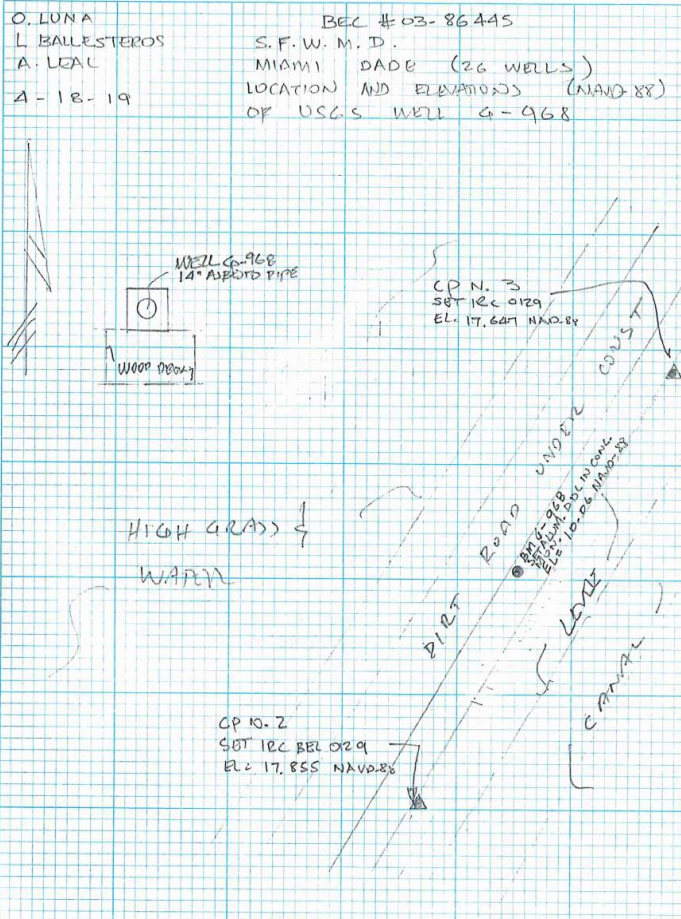 O. LUNA
L BALLESTEROS
A. LEAL
4-18-19
BEC # 03-86445
S.F.W.M.D.
MIAMI DADE (26 WELLS)
LOCATION AND ELEVATIONS (NAVD-88)
OF USGS WELL G-968
WELL G-968
14" ASBESTO PIPE
WOOD
CP N. 3
SET IRC 0129
EL. 17.647 NAVD-88
DIRT ROAD UNDER CONST
BM G-968
SET ALUM. DISC IN CONC.
MON.
EL= 10.06 NAVD-88
HIGH GRASS {
WATER
LEVEE
CANAL
CP N. 2
SET IRC BEC 0129
EL= 17.855 NAVD-88